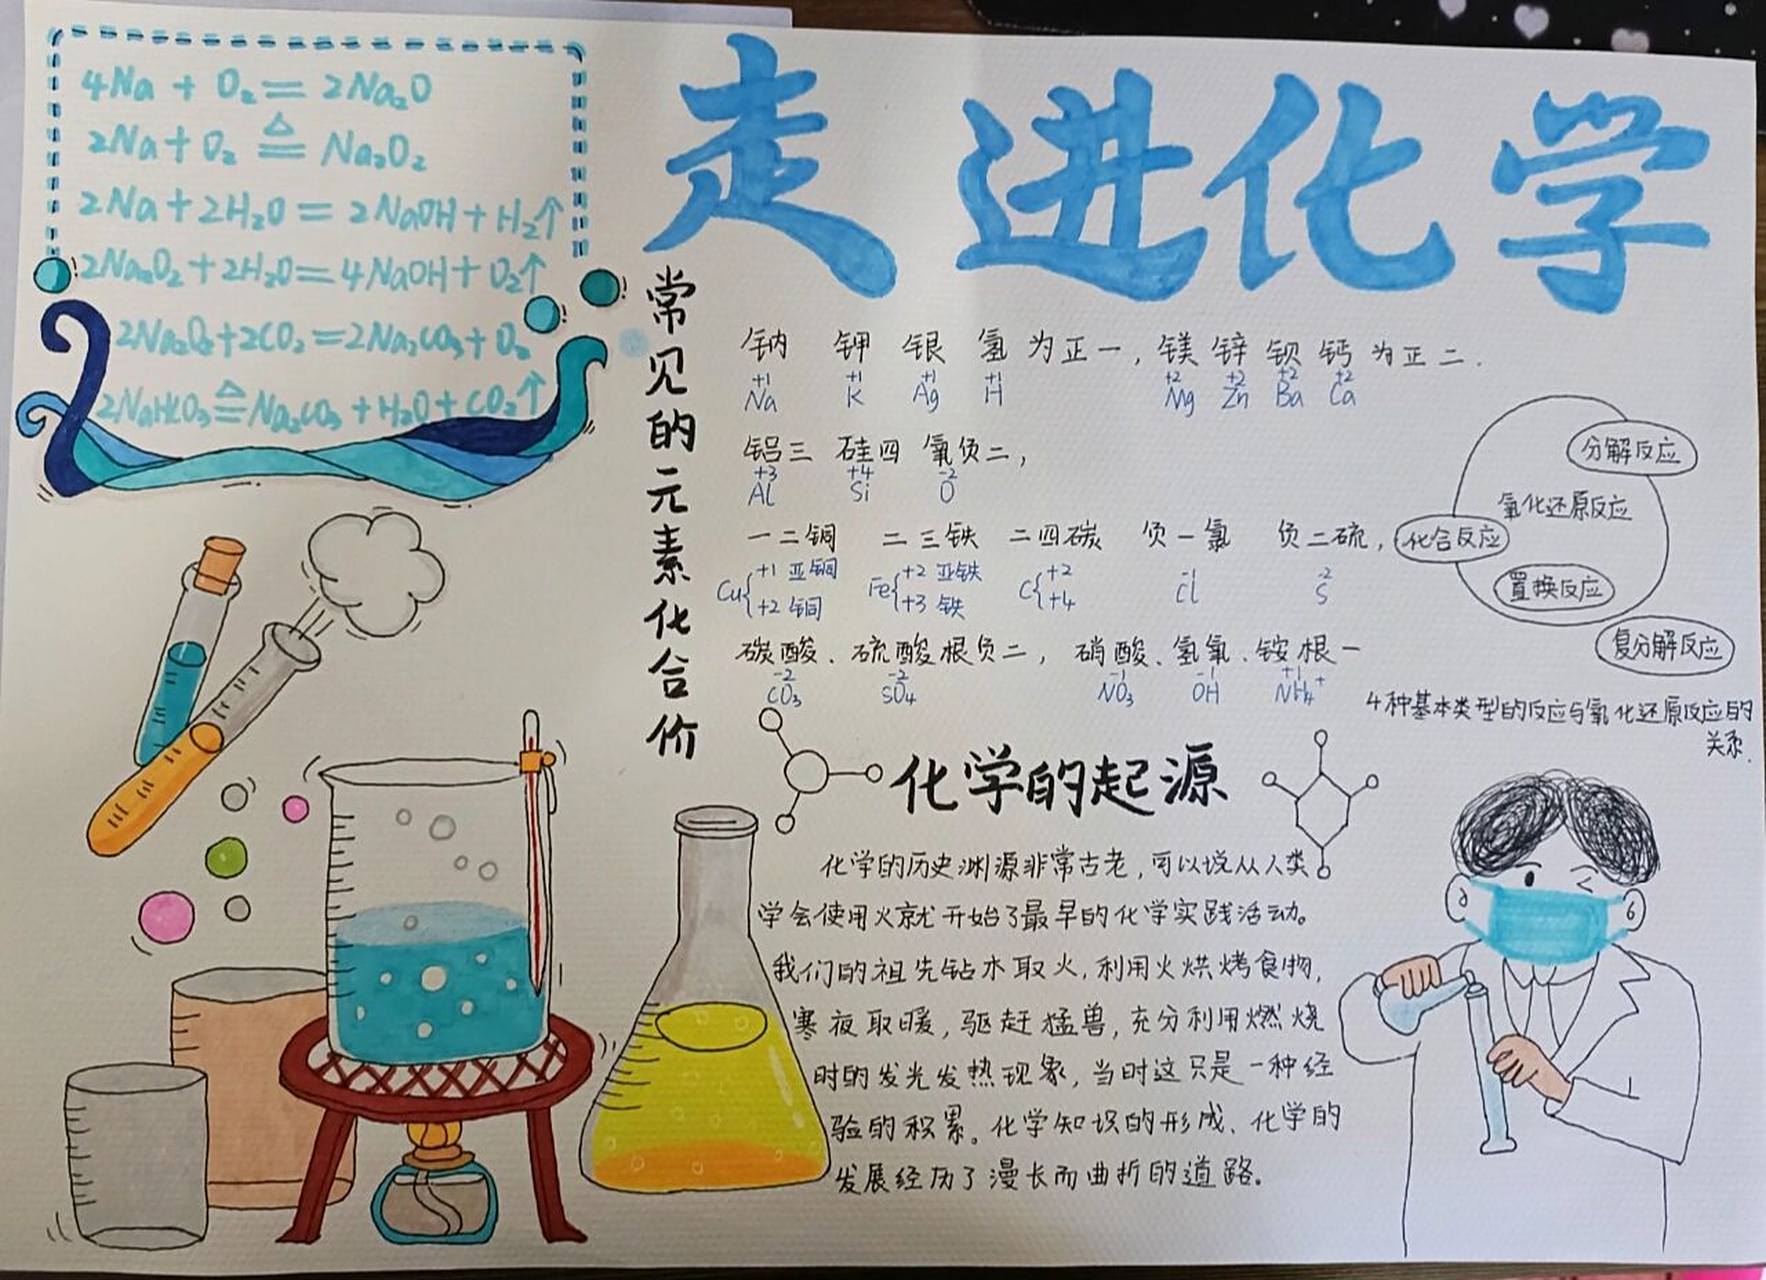 走进化学
4Na + O₂ = 2Na₂O
2Na + O₂ ≜ Na₂O₂
2Na + 2H₂O = 2NaOH + H₂↑
2Na₂O₂ + 2H₂O = 4NaOH + O₂↑
2Na₂O₂ + 2CO₂ = 2Na₂CO₃ + O₂
2NaHCO₃ ≜ Na₂CO₃ + H₂O + CO₂↑
常见的元素化合价
钠 钾 银 氢 为正一，镁 锌 钡 钙 为正二.
+1 +1 +1 +1 +2 +2 +2 +2
Na K Ag H Mg Zn Ba Ca
铝三 硅四 氧负二，
+3 +4 -2
Al Si O
一二铜 二三铁 二四碳 负一氯 负二硫，
Cu{+1 亚铜 Fe{+2 亚铁 C{+2 -1 -2
+2 铜 +3 铁 +4 Cl S
碳酸、硫酸根负二，硝酸、氢氧、铵根一
-2 -2 -1 -1 +1
CO₃ SO₄ NO₃ OH NH₄⁺
分解反应
氧化还原反应
化合反应
置换反应
复分解反应
4种基本类型的反应与氧化还原反应的
关系.
化学的起源
化学的历史渊源非常古老，可以说从人类
学会使用火就开始了最早的化学实践活动。
我们的祖先钻木取火，利用火烘烤食物，
寒夜取暖，驱赶猛兽，充分利用燃烧
时的发光发热现象，当时这只是一种经
验的积累。化学知识的形成、化学的
发展经历了漫长而曲折的道路。